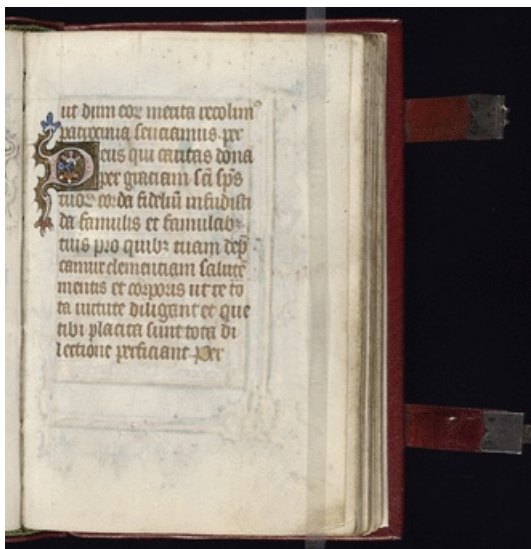 ut dum eoꝝ merita recolim⁹
patrocinia senciamus. per
Deus qui caritas dona
per graciam sc̃i sp̃s
tuoꝝ corda fideliũ infudisti
da famulis et famulabꝫ
tuis pro quibꝫ tuam dep̃
camur clementiam salutẽ
mentis et corporis ut te to
ta uirtute diligant et que
tibi placita sunt tota di
lectione perficiant Per